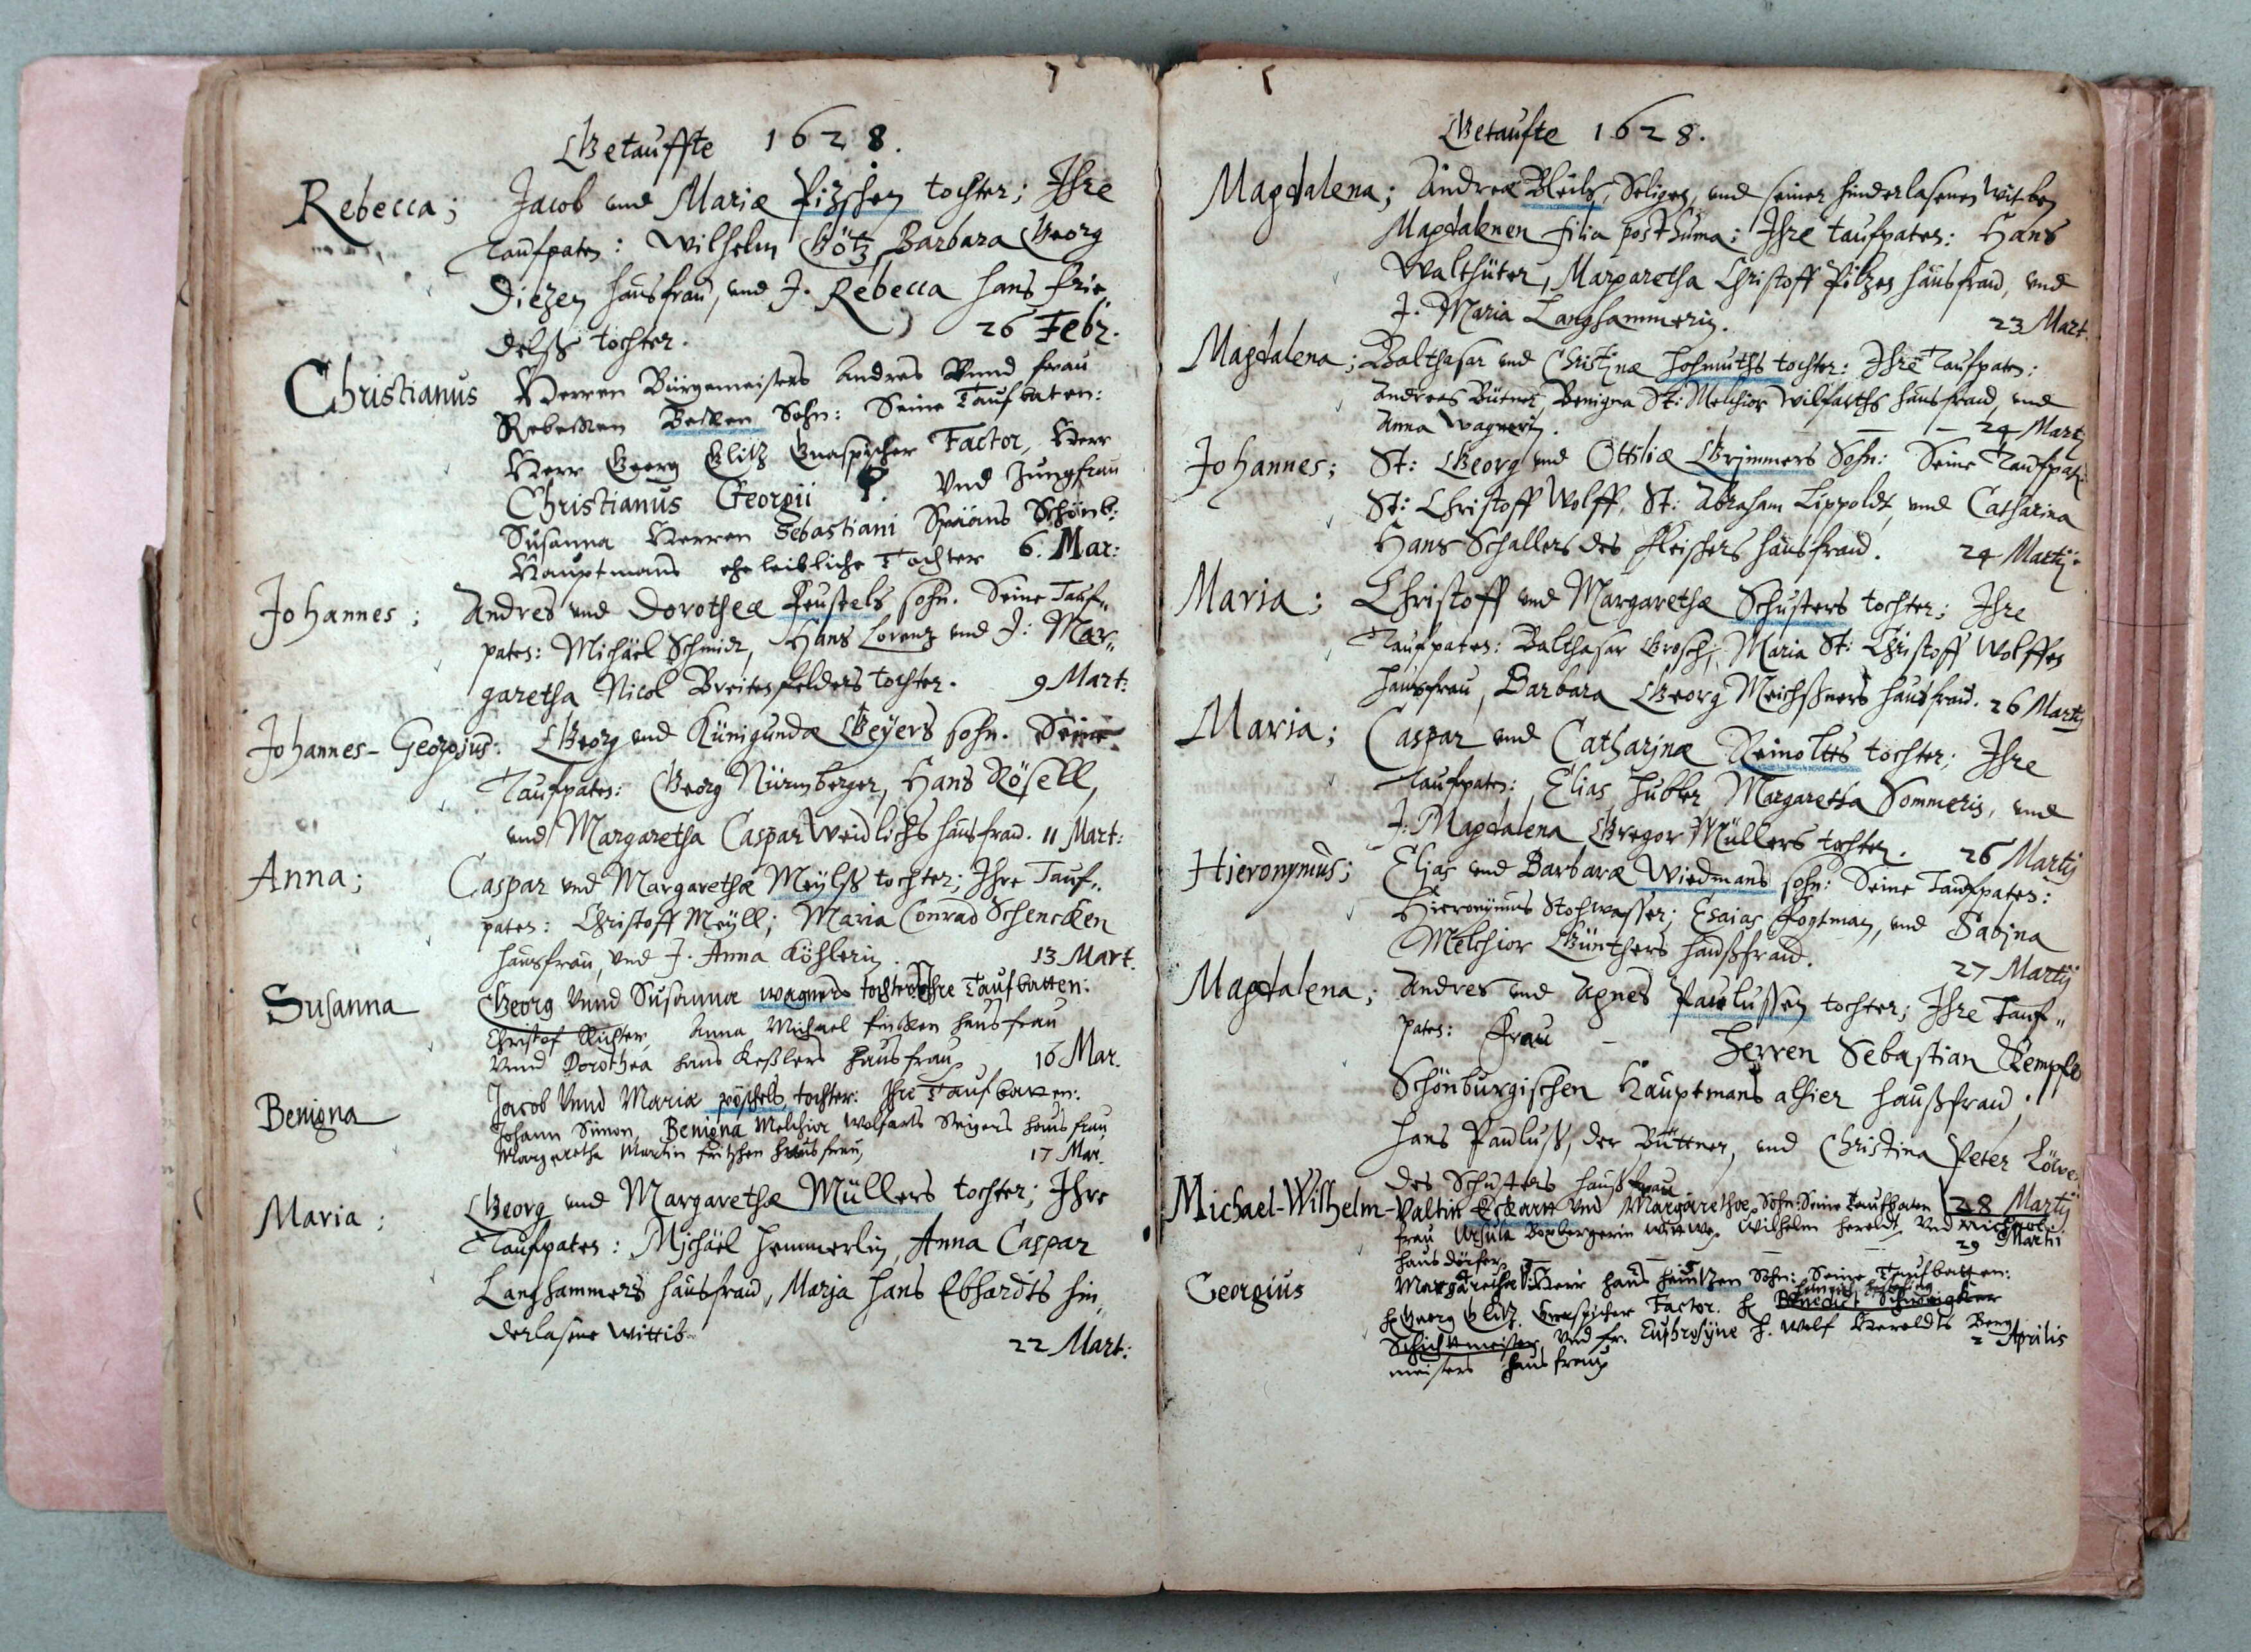 Getauffte 1628.
Rebecca; Jacob und Mariæ Pizschen tochter; Ihre
Taufpaten: Wilhelm Götz, Barbara Georg
Diezen hausfrau, und J. Rebecca Hans Frie
delß tochter. 26 Febr.
Christianus Herren Bürgemeisters Andres Vnnd frau
Rebecken Becken Sohn: Seine Taufbaten:
Herr Georg Glitz Factor, Herr
Christianus Georgii P. Vnd Jungfrau
Susanna Herren Sebastiani Schönb:
Hauptmans eheleibliche Tochter 6. Mar:
Johannes; Andres vnd Dorotheæ sohn. Seine Tauf„
paten: Michäel Schmidt, Hans Lorenz vnd J: Mar„
garetha Nicol Breitenfelders tochter. 9 Mart:
Johannes-Georgius: Georg vnd Künigundæ Geyers sohn. Seine
Taufpaten: Georg Nürmberger, Hans Rösell,
vnd Margaretha Caspar Weidlichs hausfrau. 11 Mart:
Anna; Caspar vnd Margarethæ Meylß tochter; Ihre Tauf„
paten: Christoff Meyll; Maria Conrad Schencken
hausfrau, vnd J. Anna Köhlerin. 13 Mart.
Susanna Georg Vnnd Susannæ wagners tochter Ihre Taufbatten:
Christof Richter, Anna Michael hausfrau
Vnnd Dorothea hans Keßlers hausfrau 16 Mar.
Benigna Jacob Vnnd Mariæ pöschels tochter: Ihre Taufbatten:
Johann Simon, Benigna Melchior Wolfarts hausfrau
Margaretha Martin fritzschen hausfrau 17 Mar.
Maria; Georg vnd Margarethæ Müllers tochter; Ihre
Taufpaten: Michäel Hemmerlin, Anna Caspar
Langhammers hausfrau, Maria Hans Ebhardts hin„
derlasene Wittib 22 Mart:
Getaufte 1628.
Magdalena; Andreæ Seligen, vnd seiner hinderlasenen Witben
Magdalenen filia posthuma; Ihre taufpaten: Hans
Walthüter, Margaretha Christoff Pilzes hausfrau, vnd
J. Maria Langhammerin. 23 Mart.
Magdalena; Balthasar vnd Christinæ Hohmuths tochter: Ihre Taufpaten:
Andreas Bütner, Benigna St: Melchior Wilfarths hausfrau, vnd
Anna Wagnerin. 24 Martij
Johannes; St: Georg vnd Ottiliæ Grimmers Sohn: Seine Taufpat:
St: Christoff Wolff, St: Abraham Lippoldt, vnd Catharina
Hans Schallers des fleischers hausfrau. 24 Martij.
Maria; Christoff vnd Margarethæ Schusters tochter; Ihre
Taufpaten: Balthasar Grosch, Maria St: Christoff Wolffes
hausfrau, Barbara Georg Meichßners hausfrau. 26 Martij
Maria; Caspar vnd Catharinæ Reinolts tochter; Ihre
Taufpaten: Elias Hubler, Margaretha Sommerin, vnd
J. Magdalena Gregor Müllers tochter. 26 Martij
Hieronymus; Elias vnd Barbaræ Wiedmans sohn: Seine Taufpaten:
Hieronymus Stohwasser; Esaias Fogtman, vnd Sabina
Melchior Günthers haußfrau. 27 Martij
Magdalena; Andres vnd Agnes Paulussen tochter; Ihre Tauf„
paten: Frau – Herren Sebastian
Schönburgischen Hauptmans alhier haußfrau;
Hans Pauluß, der Büttner, vnd Christina Peter
des Schusters haußfrau 28 Martij
Michael-Wilhelm- Valtin Eckartt Vnd Margarethæ Sohn: Seine Taufbaten
frau Ursula Boxbergerin wittwe, Wilhelm Heroldt, Vnd Michael
hausdörfer 29 Martii
Georgius Margaretha Herr hans Sohn: Seine Taufbatten:
H Georg Glitz Factor. H Benedict
Schichtmeister, Vnd fr. Euphrosyne H. Wolf Heroldts Berg
meisters hausfrau 2 Aprilis